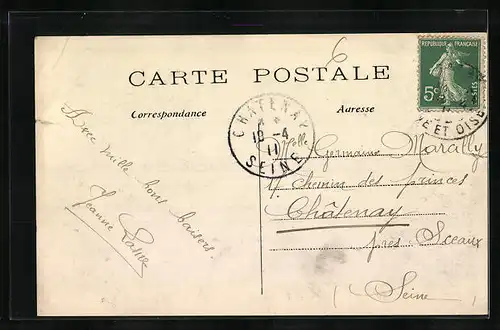 6
CARTE POSTALE
Correspondance
Adresse
RÉPUBLIQUE FRANÇAISE
5c
POSTES
CHATENAY
10-4
11
SEINE
NE ET OISE
Avec mille bons baisers.
Jeanne
Melle Germaine Marally
Chemin des princes
Châtenay
près Sceaux
(Seine